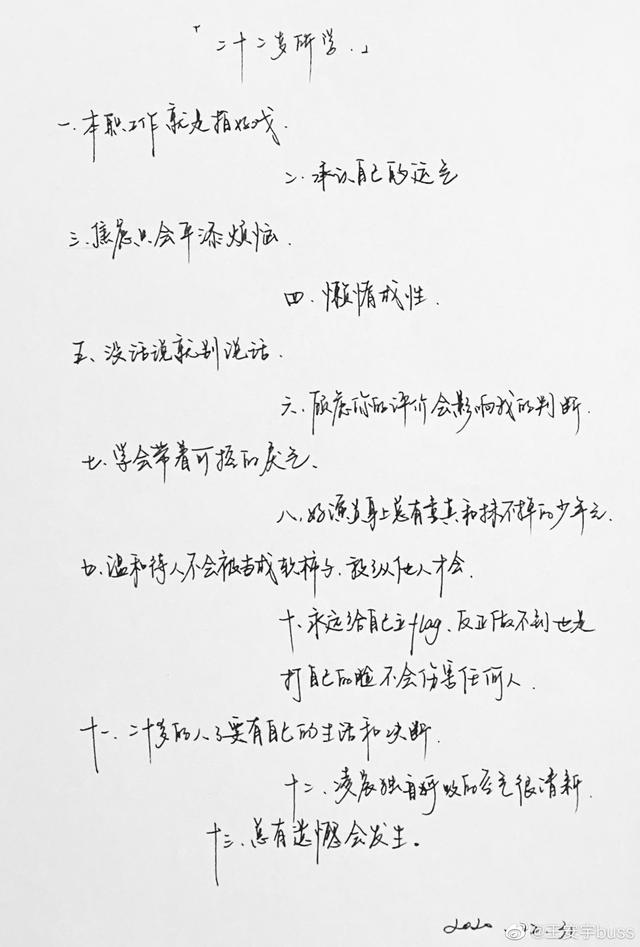 「二十二岁所学.」
一.本职工作就是拍好戏.
二.承认自己的运气
三.焦虑只会平添烦恼.
四.懒惰成性.
五、没话说就别说话.
六.顾虑你的评价会影响我的判断.
七.学会带着可控的戾气、
八.好演员身上总有童真和抹不掉的少年气.
九.温和待人不会被当成软柿子.放纵他人才会.
十.永远给自己立flag.反正做不到也是
打自己的脸不会伤害任何人.
十一.二十多的人了要有自己的生活和决断.
十二.凌晨独自呼吸的空气很清新.
十三.总有遗憾会发生。
2020.
@王安宇buss